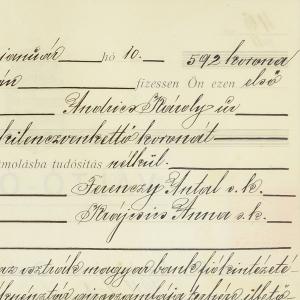 január hó 10. 592 korona
fizessen Ön ezen első
Andrics Károly úr
kilenczvenkettő koronát
számolásba tudósítás nélkül.
Ferenczy Antal s.k.
Krájcsics Anna s.k.
az osztrák magyar bank fiókintézeté